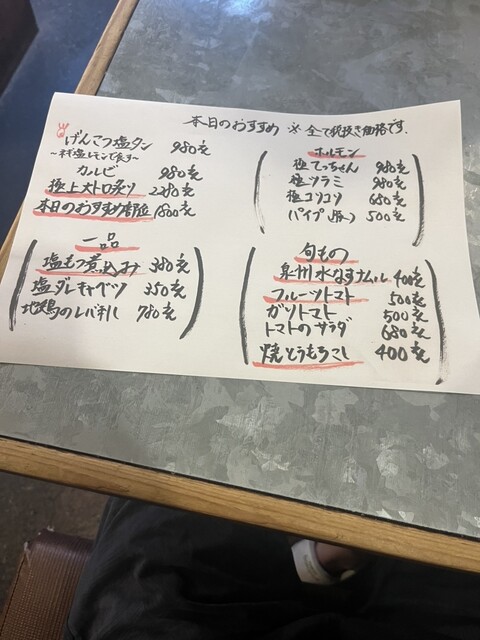 本日のおすすめ ※全て税抜き価格です。
げんこつ塩タン 980円
〜ネギ塩レモンで食す〜
カルビ 980円
極上大トロ炙り 2280円
本日のおすすめ部位 1800円
ホルモン
極てっちゃん 980円
極ツラミ 980円
極コリコリ 680円
パイプ(豚) 500円
一品
塩もつ煮込み 380円
塩ダレキャベツ 350円
地鶏のレバ刺し 780円
旬もの
泉州水なすナムル 400円
フルーツトマト 500円
ガツトマト 500円
トマトのサラダ 680円
焼とうもろこし 400円